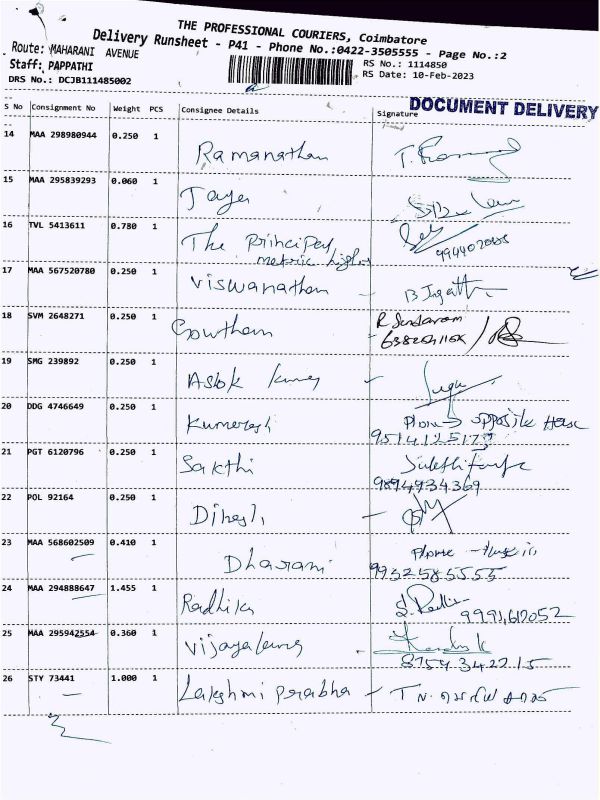 THE PROFESSIONAL COURIERS, Coimbatore
Delivery Runsheet - P41 - Phone No.:0422-3505555 - Page No.:2
Route: MAHARANI AVENUE
Staff: PAPPATHI
DRS No.: DCJB111485002
RS No.: 1114850
RS Date: 10-Feb-2023
DOCUMENT DELIVERY
S No Consignment No Weight PCS Consignee Details Signature
14 MAA 298980944 0.250 1 Ramanathan
15 MAA 295839293 0.060 1
16 TVL 5413611 0.780 1 The principal
metric
17 MAA 567520780 0.250 1 Viswanathan
18 SVM 2648271 0.250 1 Gowtham R Sundaram
19 SMG 239892 0.250 1 Ashok
20 DDG 4746649 0.250 1 Kumaresh opposite House
21 PGT 6120796 0.250 1 Sakthi
9894934369
22 POL 92164 0.250 1 Dinesh
23 MAA 568602509 0.410 1 Dharani Phone
9932585555
24 MAA 294888647 1.455 1 Radhika
25 MAA 295942554 0.360 1
8754342215
26 STY 73441 1.000 1 Lakshmi prabha